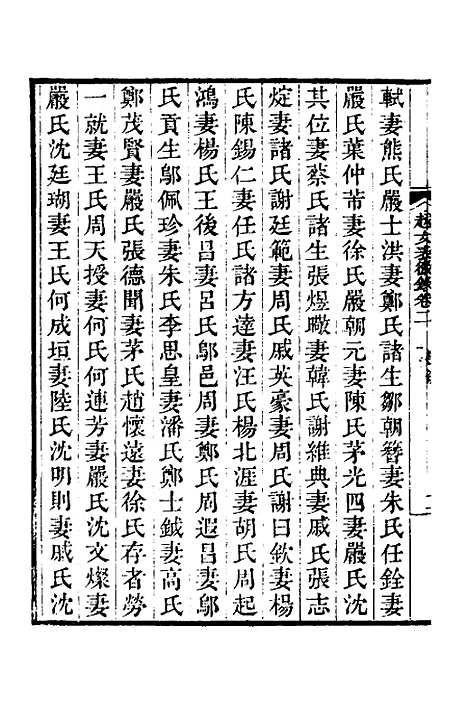 軾妻熊氏嚴士洪妻鄭氏諸生鄒朝簪妻朱氏任銓妻
嚴氏葉仲芾妻徐氏嚴朝元妻陳氏茅光四妻嚴氏沈
其位妻蔡氏諸生張煜瞰妻韓氏謝維典妻戚氏張志
妻諸氏謝廷範妻周氏戚英豪妻周氏謝日欽妻楊
氏陳錫仁妻任氏諸方逵妻汪氏楊北涯妻胡氏周起
鴻妻楊氏王後呂妻呂氏鄔邑周妻鄭氏周遐呂妻鄔
氏貢生鄔佩珍妻朱氏李思皇妻潘氏鄭士鉞妻高氏
鄭茂賢妻嚴氏張德聞妻茅氏趙懷遠妻徐氏存者勞
一就妻王氏周天授妻何氏何連芳妻嚴氏沈文燦妻
嚴氏沈廷瑚妻王氏何成垣妻陸氏沈明則妻戚氏沈
越女表微錄卷二